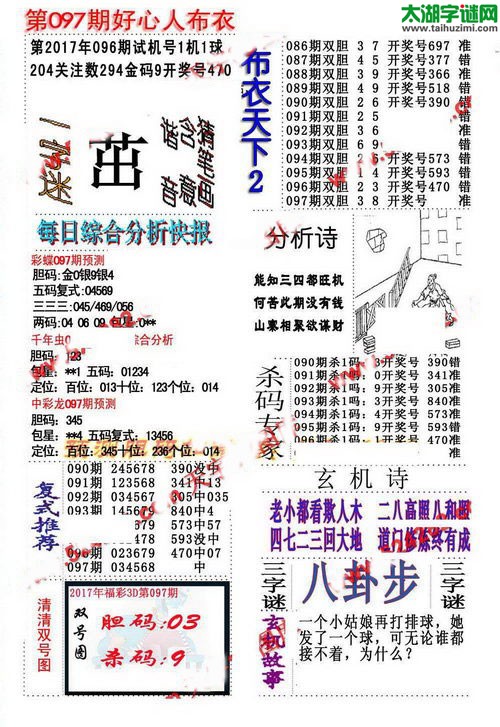 太湖字谜网
www.taihuzimi.com
第097期好心人布衣
第2017年096期试机号1机1球
204关注数294金码9开奖号470
茁
每日综合分析快报
彩蝶097期预测
胆码:金0银9银4
五码复式:04569
三三三:045/469/056
两码:04 06 09 包星:0**
千年虫
综合分析
胆码: 123
包星:**1 五码: 01234
定位:百位:013十位:123个位:014
中彩龙097期预测
胆码:345
包星:**4 五码复式:13456
定位:百位:345十位:236个位:014
复式推荐
090期 245678 390没中
091期 123568 341中13
092期 034567 305中035
145679 840中4
579 573中57
578 593没中
096期 023679 470中07
097期 034568
清清双号图
2017年福彩3D第097期
双号图
胆码:03
杀码:9
布衣天下2
086期双胆 3 7 开奖号697 准
087期双胆 4 5 开奖号377 错
088期双胆 3 9 开奖号366 准
089期双胆 4 6 开奖号518 错
090期双胆 2 6 开奖号390 错
091期双胆 2 5
092期双胆 3 6
093期双胆 6 9
094期双胆 2 4 开奖号573 错
095期双胆 1 4 开奖号593 错
096期双胆 2 3 开奖号470 错
097期双胆 3 8 开奖号 准
分析诗
能知三四都旺机
何苦此期没有钱
山寨相聚欲谋财
杀码专家
090期杀1码: 3开奖号 390错
091期杀1码: 0开奖号 341准
092期杀1码: 9开奖号 305准
093期杀1码: 5开奖号 840准
094期杀1码: 4开奖号 573准
095期杀1码: 0开奖号 593准
玄机诗
老小都看欺人木 二八高照八和图
四七二三回大地 道门修炼终有成
三字谜
八卦步
三字谜
玄机故事
一个小姑娘再打排球,她
发了一个球,可无论谁都
接不着,为什么?